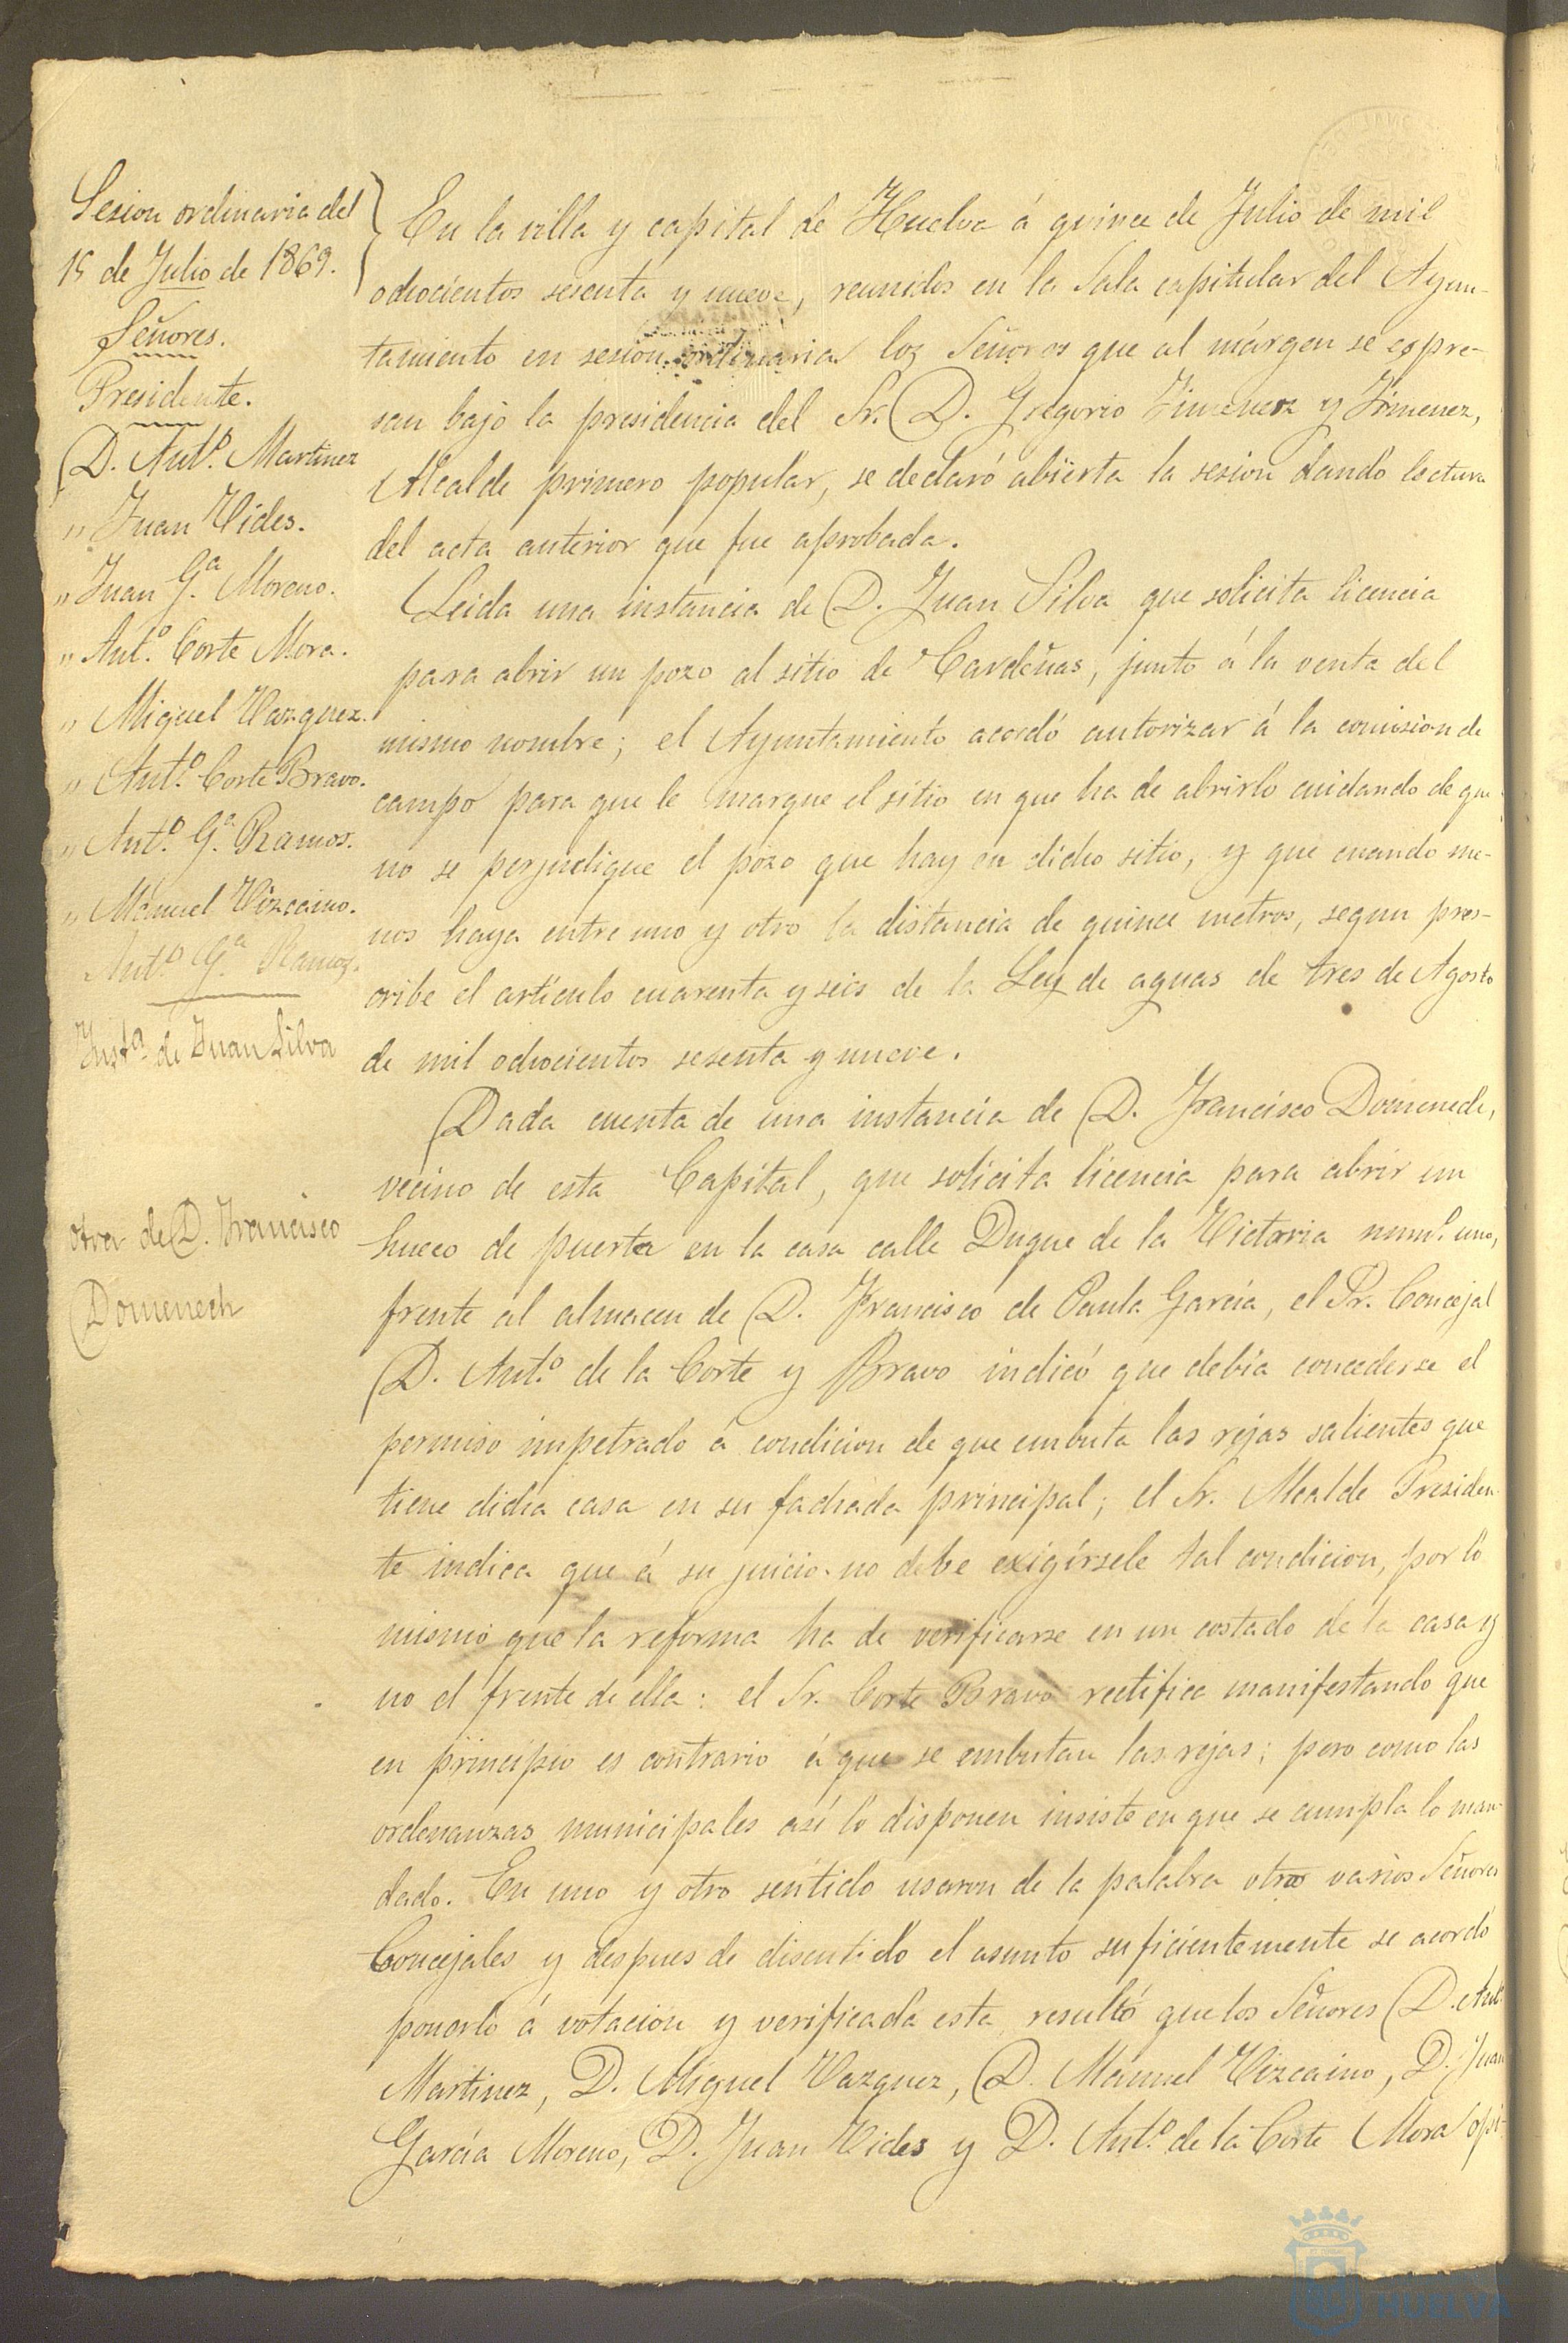 Sesion ordinaria del
15 de Julio de 1869.
Señores.
Presidente.
D. Antº. Martinez
" Juan Vides.
" Juan Gª. Moreno.
" Antº. Corte Mora.
" Miguel Vazquez.
" Antº. Corte Bravo.
" Antº. Gª. Ramos.
" Manuel Vizcaino.
Antº. Gª. Ramos.
Instª. de Juan Silva
otra de D. Francisco
Domenech
En la villa y capital de Huelva á quince de Julio de mil
ochocientos sesenta y nueve, reunidos en la Sala capitular del Ayun-
tamiento en sesion ordinaria los Señores que al márgen se espre-
san bajo la presidencia del Sr. D. Gregorio Jimenez y Jimenez,
Alcalde primero popular, se declaró abierta la sesion dando lectura
del acta anterior que fue aprobada.
Leida una instancia de D. Juan Silva que solicita licencia
para abrir un pozo al sitio de Cardeñas, junto á la venta del
mismo nombre; el Ayuntamiento acordó autorizar á la comision de
campo para que le marque el sitio en que ha de abrirlo cuidando de que
no se perjudique el pozo que hay en dicho sitio, y que cuando me-
nos haya entre uno y otro la distancia de quince metros, segun pres-
cribe el artículo cuarenta y seis de la Ley de aguas de tres de Agosto
de mil ochocientos sesenta y nueve.
Dada cuenta de una instancia de D. Francisco Domenech,
vecino de esta Capital, que solicita licencia para abrir un
hueco de puerta en la casa calle Duque de la Victoria num.º uno,
frente al almacen de D. Francisco de Paula García, el Sr. Concejal
D. Antº. de la Corte y Bravo indicó que debía concederse el
permiso impetrado á condicion de que embuta las rejas salientes que
tiene dicha casa en su fachada principal; el Sr. Alcalde Presiden-
te indica que á su juicio no debe exigírsele tal condicion, por lo
mismo que la reforma ha de verificarse en un costado de la casa y
no el frente de ella: el Sr. Corte Bravo rectifica manifestando que
en principio es contrario á que se embutan las rejas; pero como las
ordenanzas municipales así lo disponen insiste en que se cumpla lo man-
dado. En uno y otro sentido usaron de la palabra otros varios Señores
Concejales y despues de discutido el asunto suficientemente se acordó
ponerlo á votacion y verificada esta resultó que los Señores D. Antº.
Martinez, D. Miguel Vazquez, D. Manuel Vizcaino, D. Juan
García Moreno, D. Juan Vides y D. Antº. de la Corte Mora opi-
HUELVA